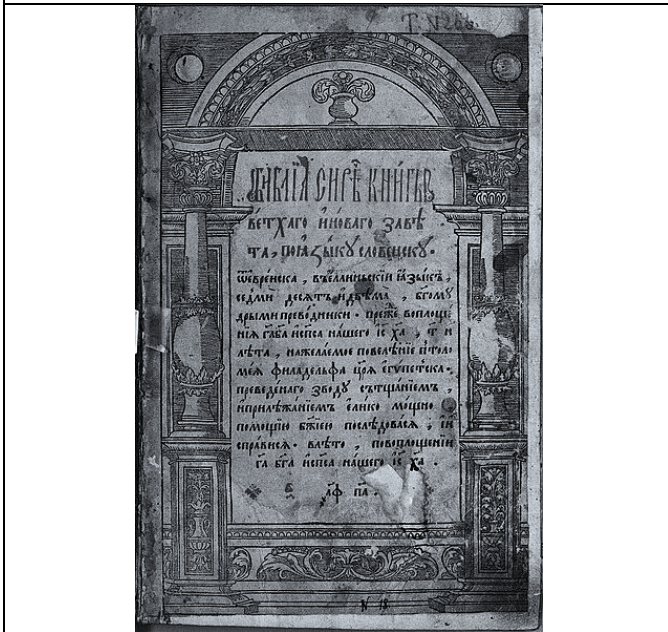 БИБЛІА СИРѢЧЬ КНИГЫ
ВЕТХАГО ИНОВАГО ЗАВѢ
ТА, ПОꙖЗЫКУ СЛОВЕНСКУ.
ѾЕВРЕИСКА, ВЪЕЛЛИНЬСКІИ ꙖЗЫКЪ,
СЕДМИ ДЕСѦТЪ ИДВѢМА, БГОМУ
ДРЫМИ ПРЕВОДНИКИ. ПРЕЖЕ ВОПЛОЩЕ
НІѦ ГАБА ИСПСА НАШЕГО ІС ХА, Т И
ЛѢТА, НАЖЕЛАЕМОЕ ПОВЕЛѢНІЕ ПТОЛО
МЕѦ ФИЛАДЕЛЬФА ЦРѦ ЕГУПЕТСКА.
ПРЕВЕДЕНАГО ЗВОДУ СЪТЩАНІЕМЪ,
ИПРИЛѢЖАНІЕМЪ ЕЛИКО МОЩНО
ПОМОЩІЮ БЖІЕЮ ПОСЛѢДОВАСѦ, И
СПРАВИСѦ. ВЛѢТО, ПОВОПЛОЩЕНІИ
ГА БГА ИСПСА НАШЕГО ІС ХА.
АФ ПА.